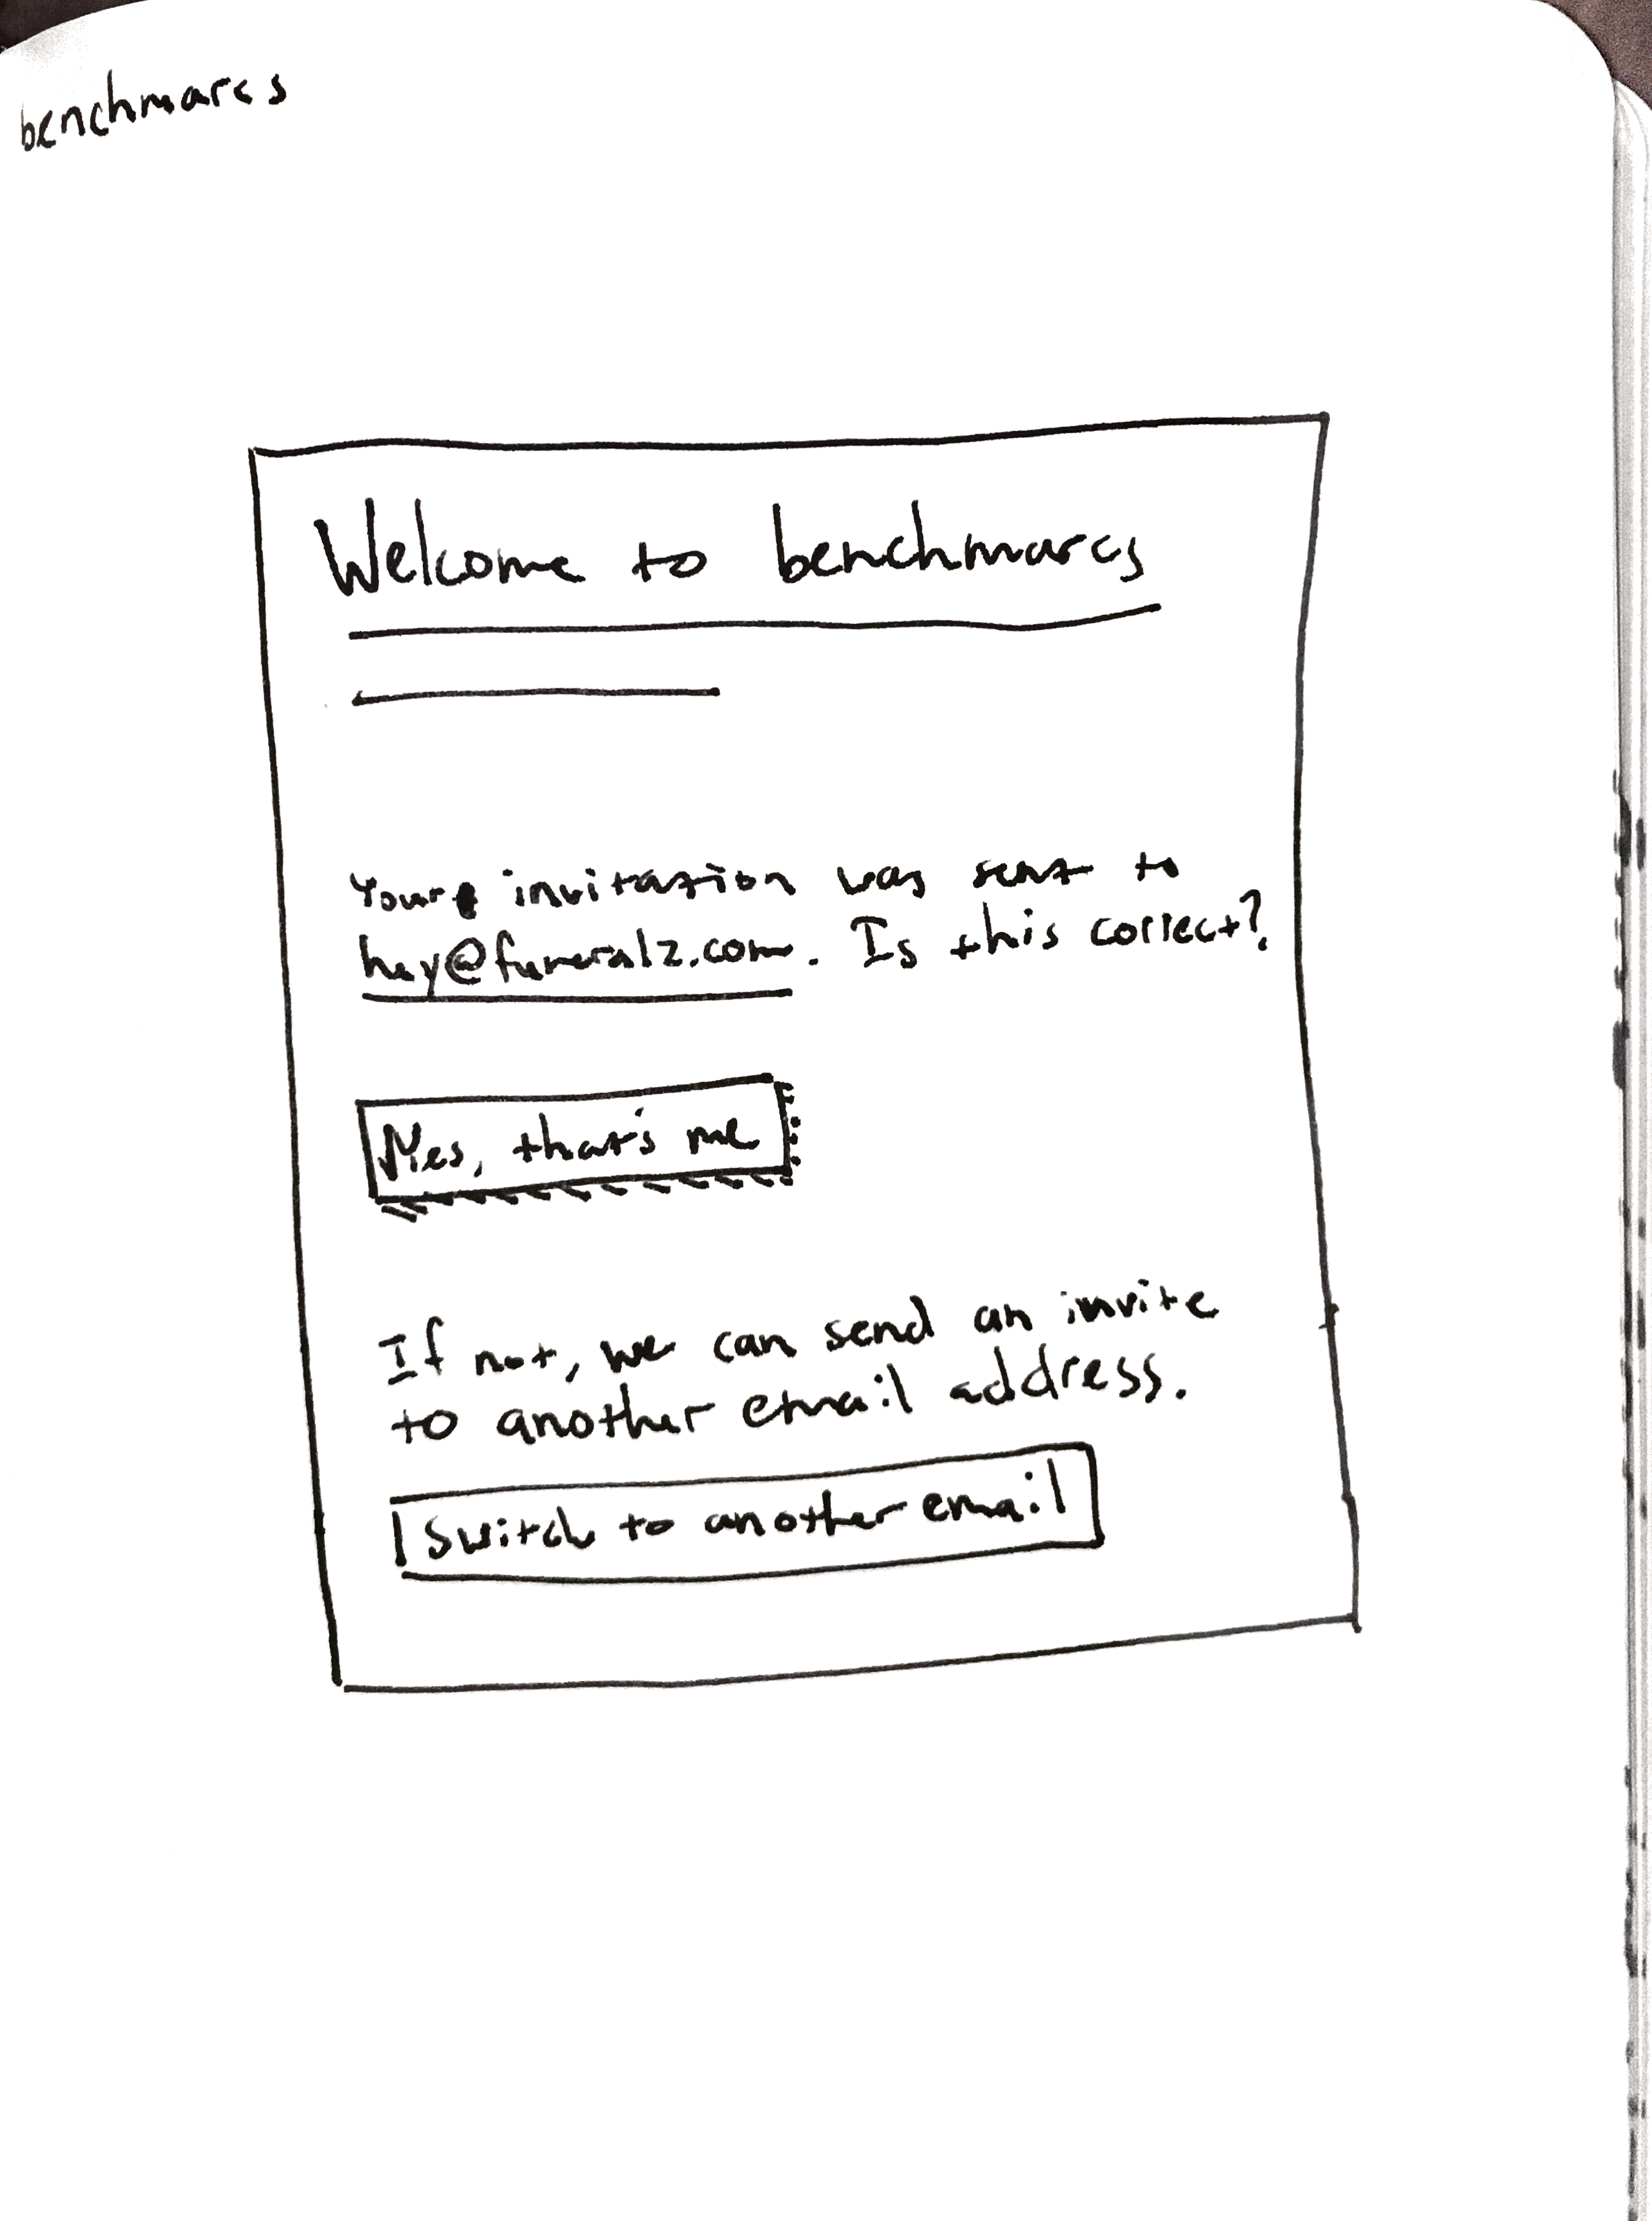 benchmarcs
Welcome to benchmarcs
Your invitation was sent to
hey@funeralz.com. Is this correct?
Yes, that's me
If not, we can send an invite
to another email address.
Switch to another email